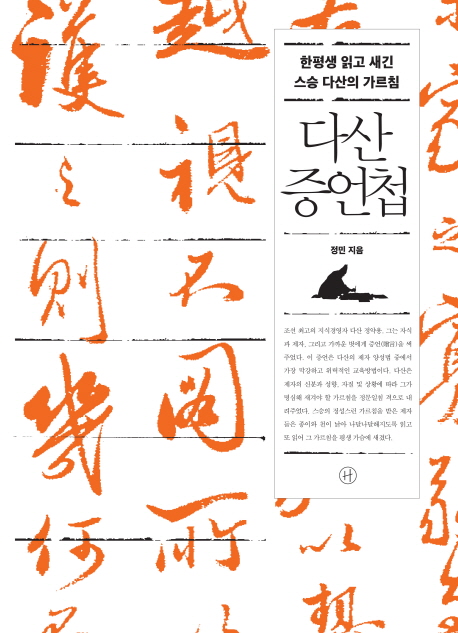 한평생 읽고 새긴
스승 다산의 가르침
다산
증언첩
정민 지음
조선 최고의 지식경영자 다산 정약용. 그는 자식
과 제자, 그리고 가까운 벗에게 증언(贈言)을 써
주었다. 이 증언은 다산의 제자 양성법 중에서
가장 막강하고 위력적인 교육방법이다. 다산은
제자의 신분과 성향, 자질 및 상황에 따라 그가
명심해 새겨야 할 가르침을 정문일침 격으로 내
려주었다. 스승의 정성스런 가르침을 받은 제자
들은 종이와 천이 닳아 나달나달해지도록 읽고
또 읽어 그 가르침을 평생 가슴에 새겼다.
H
以想
越視不圖所
護之則幾何